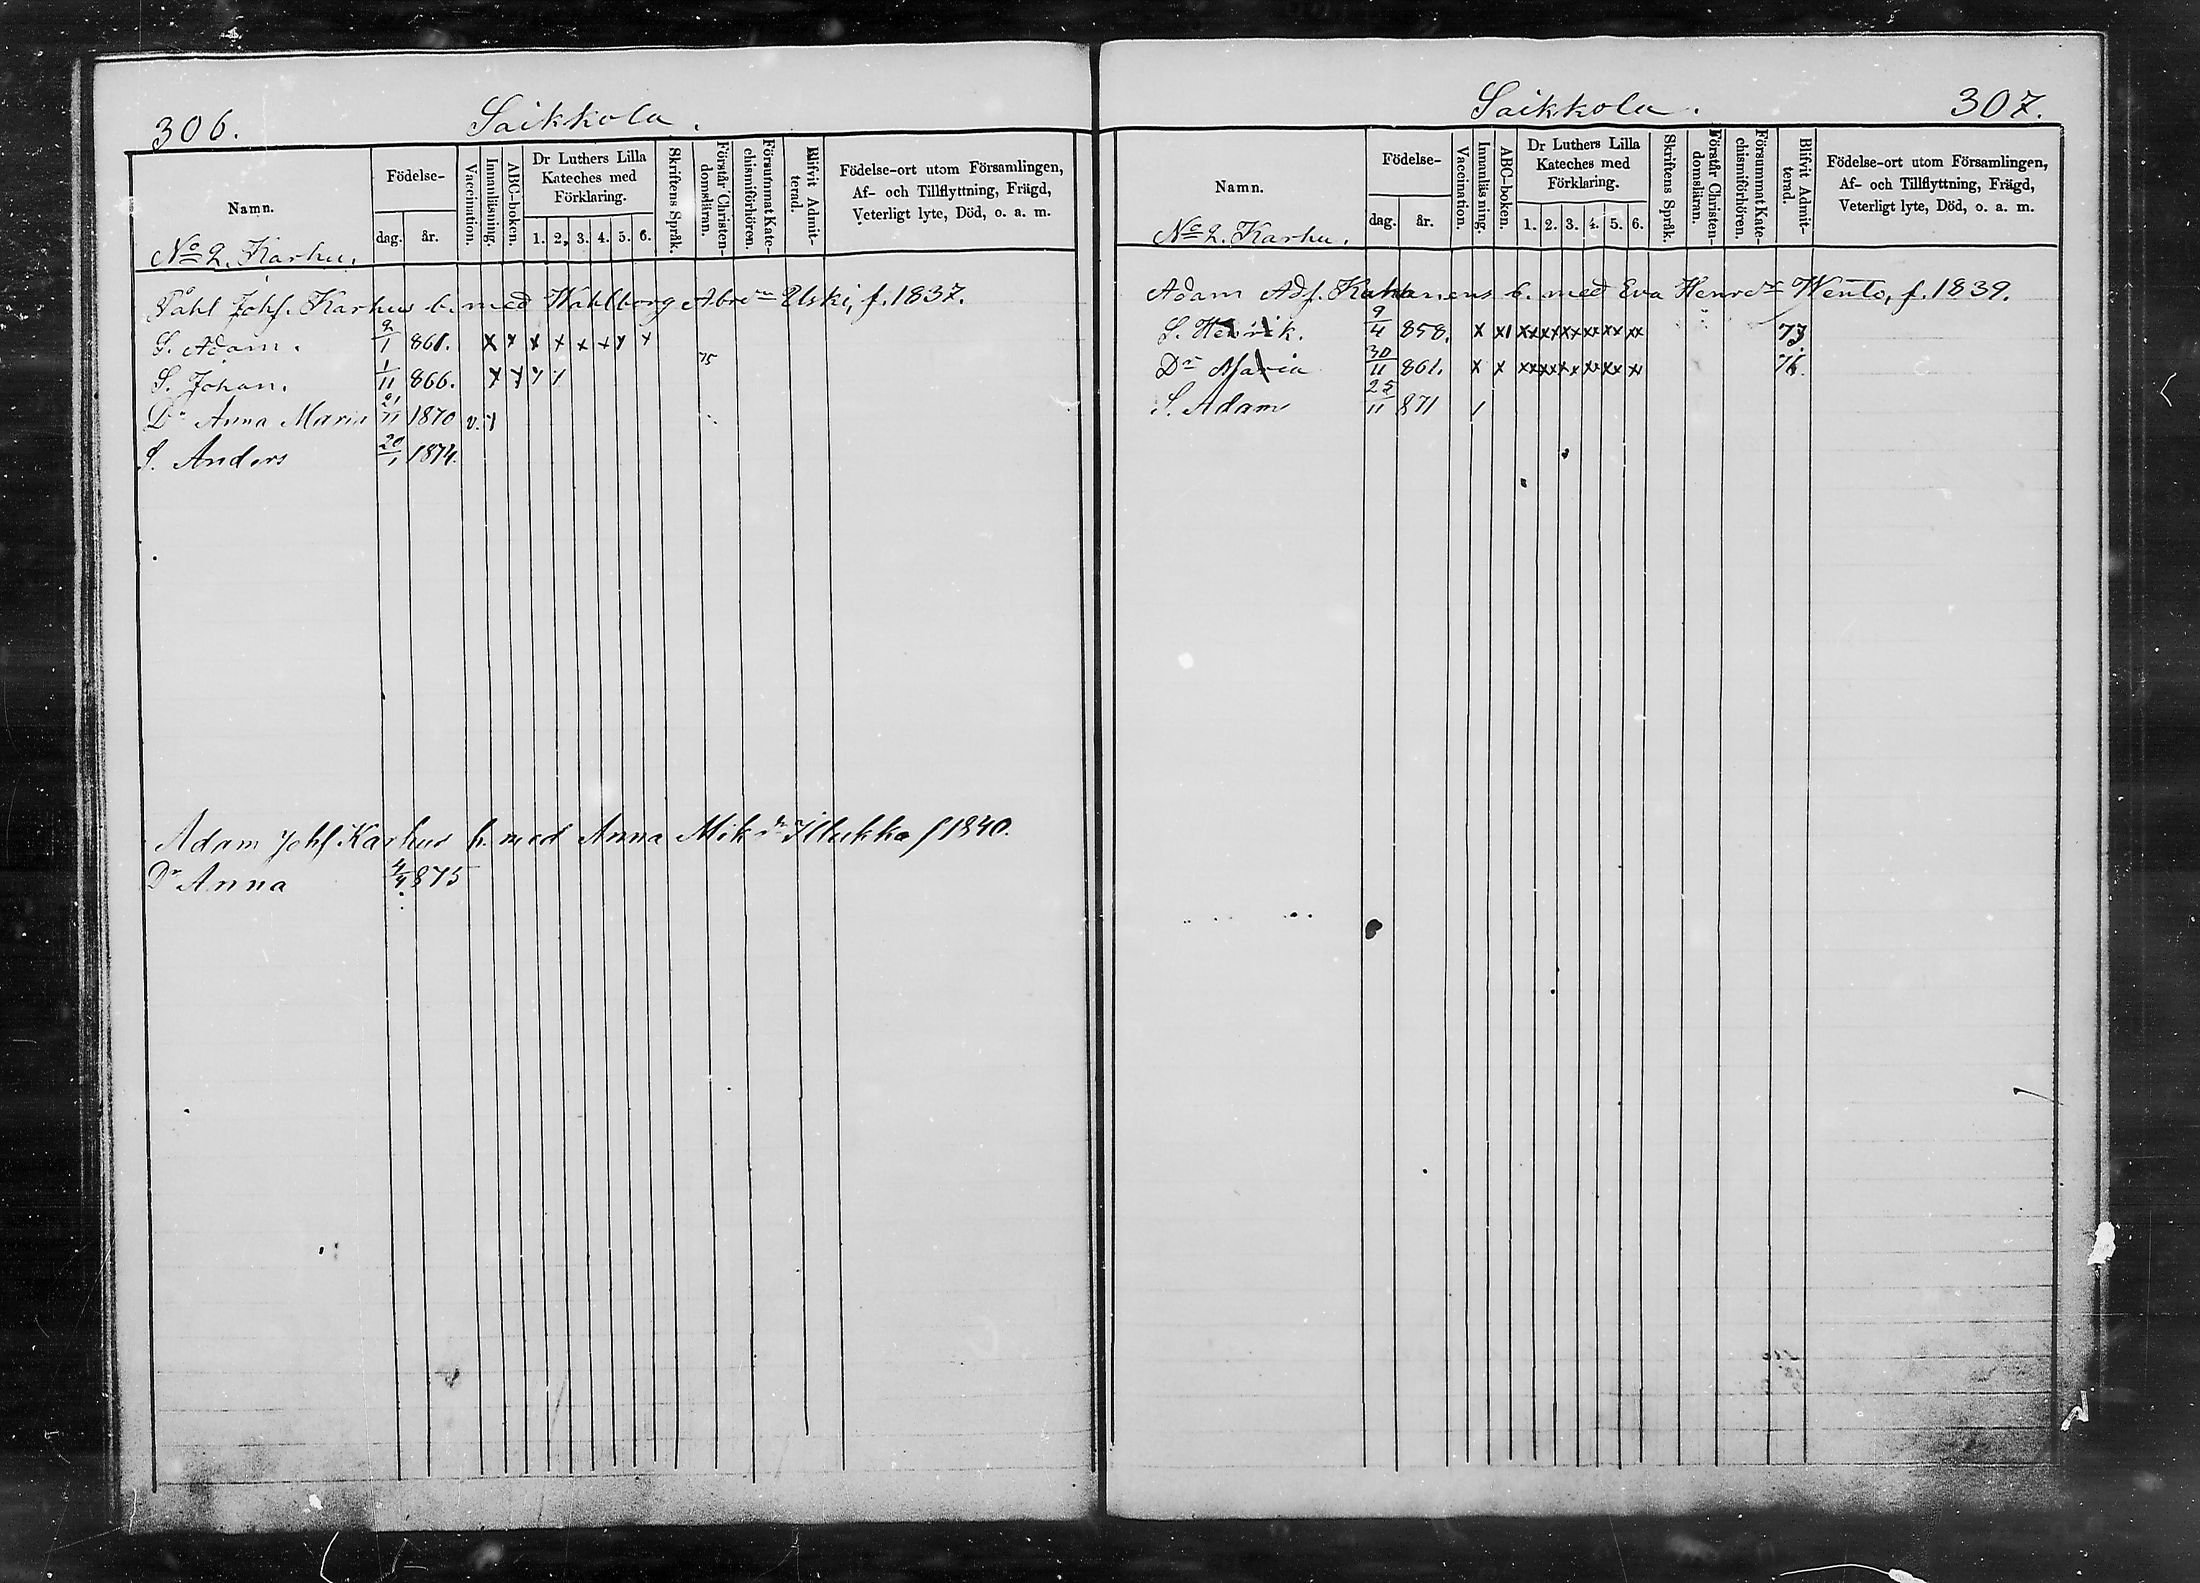 306.
Saikkola.
Namn.
Födelse-
dag. år.
Vaccination.
Innanläsning.
ABC-boken.
Dr Luthers Lilla Kateches med Förklaring.
1. 2. 3. 4. 5. 6.
Skriftens Språk.
Förstår Christendomsläran.
Försummat Katechismiförhören.
Blifvit Admitterad.
Födelse-ort utom Församlingen,
Af- och Tillflyttning, Frägd,
Veterligt lyte, Död, o. a. m.
No 2. Karhu.
Påhl Johs. Karhus b. med Wahlborg Abrdr Elski, f. 1837.
S. Adam. 2/1 861. x x x x x x x x
S. Johan. 1/11 866. x x 1 1 75
Dr Anna Maria 21/11 1870 v. 1
S. Anders 20/1 1874.
Adam Johs Karhus b. med Anna Mik dr Illukka f 1840.
Dr Anna 4/4 875
Saikkola.
307.
Namn.
Födelse-
dag. år.
Vaccination.
Innanläsning.
ABC-boken.
Dr Luthers Lilla Kateches med Förklaring.
1. 2. 3. 4. 5. 6.
Skriftens Språk.
Förstår Christendomsläran.
Försummat Katechismiförhören.
Blifvit Admitterad.
Födelse-ort utom Församlingen,
Af- och Tillflyttning, Frägd,
Veterligt lyte, Död, o. a. m.
No 2. Karhu.
Adam Ads. Kahanens b. med Eva Henrdr Wento, f. 1839.
S. Henrik. 9/4 858. x x1 xx xx xx xx xx xx 73.
Dr Maria 30/11 861. x x xx xx xx xx xx xx 76.
S. Adam 25/11 871 1